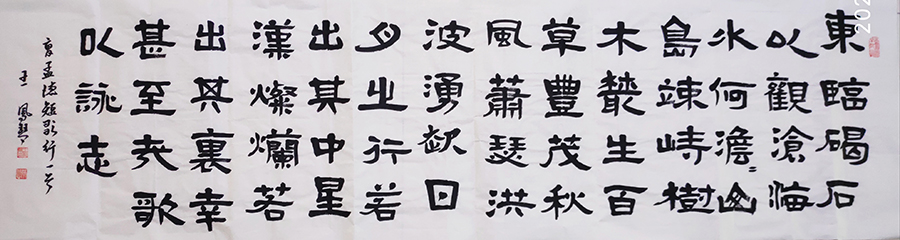 東臨碣石
以觀滄海
水何澹〻山
島竦峙樹
木叢生百
草豐茂秋
風蕭瑟洪
波湧起日
月之行若
出其中星
漢燦爛若
出其裏幸
甚至哉歌
以詠志
孟德短歌行一首
王鳳
202